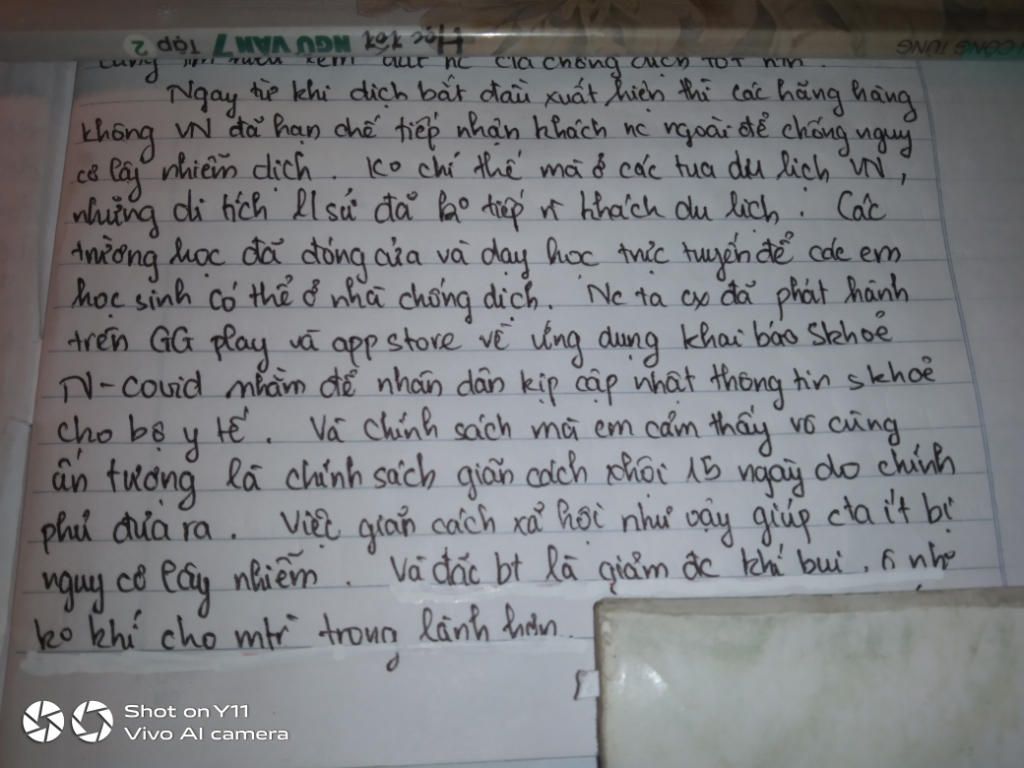 Học tốt NGỮ VĂN 7 TẬP 2
Ngay từ khi dịch bắt đầu xuất hiện thì các hãng hàng
không VN đã hạn chế tiếp nhận khách nc ngoài để chống nguy
cơ lây nhiễm dịch. Ko chỉ thế mà ở các tua du lịch VN,
những di tích ll sử đã ko tiếp khách du lịch. Các
trường học đã đóng cửa và dạy học trực tuyến để các em
học sinh có thể ở nhà chống dịch. Nc ta cx đã phát hành
trên GG play và app store về ứng dụng khai báo skhoẻ
N-covid nhằm để nhân dân kịp cập nhật thông tin skhoẻ
cho bộ y tế. Và chính sách mà em cảm thấy vô cùng
ấn tượng là chính sách giãn cách xhội 15 ngày do chính
phủ đưa ra. Việc giãn cách xã hội như vậy giúp cta ít bị
nguy cơ lây nhiễm. Và đặc bt là giảm đc khí bụi, ô nh
ko khí cho mtr trong lành hơn.
Shot on Y11
Vivo AI camera